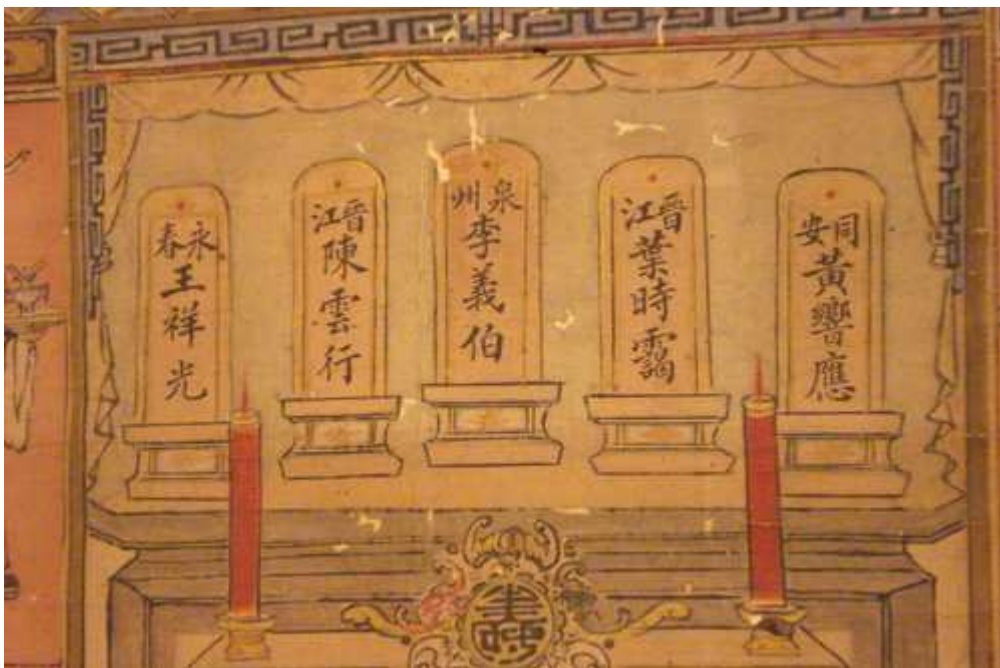 同安
黃響應
晉江
葉時靄
泉州
李義伯
晉江
陳雲行
永春
王祥光